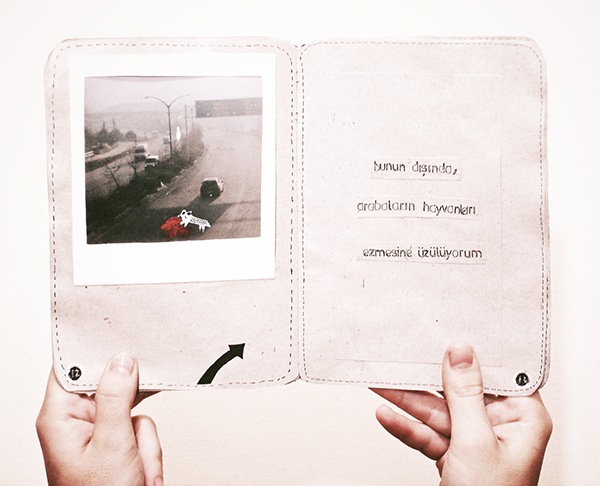 bunun dışında,
arabaların hayvanları
ezmesine üzülüyorum
12